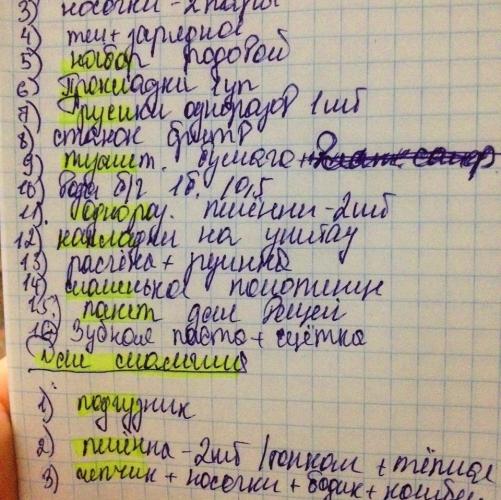 3) носочки - 2 пары
4) тел + зарядное
5) набор родовой
6) Прокладки 1 уп
7) трусики одноразов 1 шт
8) станок бритв
9) туалет. бумага
10) вода б/г 1б. /0,5
11) однораз. пелёнки - 2 шт
12) накладки на унитаз
13) расчёска + резинка
14) маленькое полотенце
15) пакет для вещей
16) Зубная паста + щётка
Для малыша
1) подгузник
2) пелёнка - 2 шт /тонкая + тёплая
3) чепчик + носочки + бодик +